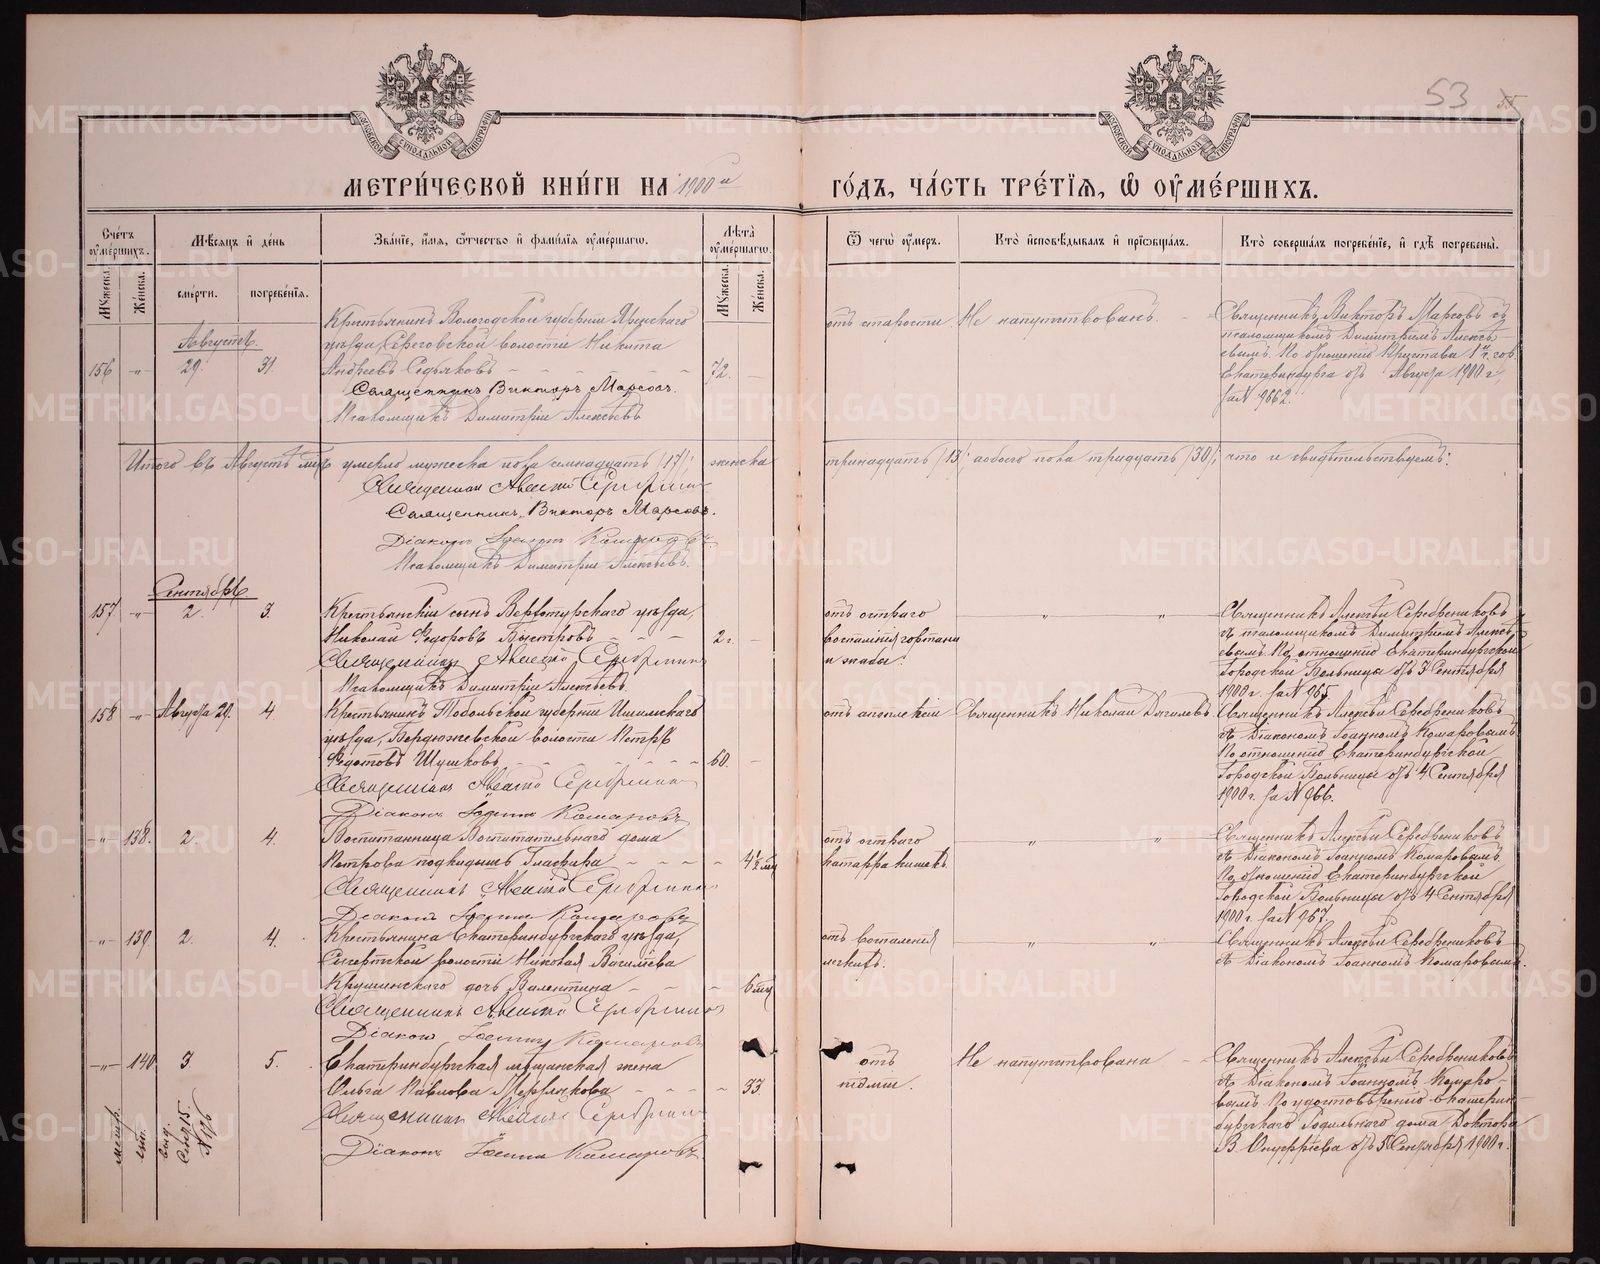 53
МОСКОВСКОЙ СѴНОДАЛЬНОЙ ТИПОГРАФІИ
МОСКОВСКОЙ СѴНОДАЛЬНОЙ ТИПОГРАФІИ
МЕТРИ́ЧЕСКОЙ КНИ́ГИ НА 1900й ГО́ДЪ, ЧА́СТЬ ТРЕ́ТІЯ, Ѡ ОУМЕ́РШИХЪ.
Сче́тъ оуме́ршихъ.
Мꙋжеска. Же́нска.
Мѣсяцъ и де́нь
сме́рти. погребе́нія.
Зва́ніе, и́мя, о́тчество и фами́лія оуме́ршагѡ.
Лѣта̀ оуме́ршагѡ.
Мꙋжеска. Же́нска.
Ѿ чегѡ̀ оу́меръ.
Кто̀ исповѣ́дывалъ и прїѡбща́лъ.
Кто̀ соверша́лъ погребе́ніе, и гдѣ̀ погребены̀.
Августъ
156 -„- 29. 31.
Крестьянинъ Вологодской губерніи Яренскаго
уѣзда, Серёговской волости Никита
Андреевъ Седьяковъ 72.
Священникъ Викторъ Марсовъ.
Псаломщикъ Димитрій Алексѣевъ
отъ старости
Не напутствованъ.
Священникъ Викторъ Марсовъ съ
псаломщикомъ Димитріемъ Алексѣ-
евымъ. По отношенію Пристава 1 ч. гор.
Екатеринбурга отъ Августа 1900 г.
за № 9662.
Итого въ Августѣ м-цѣ умерло мужеска пола семнадцать /17/; женска тринадцать /13/; а обоего пола тридцать /30/; что и свидѣтельствуемъ:
Священникъ Алексѣй Серебрениковъ
Священникъ Викторъ Марсовъ.
Діаконъ Іоаннъ Комаровъ.
Псаломщикъ Димитрій Алексѣевъ.
Сентябрь
157 -„- 2. 3.
Крестьянскій сынъ Верхотурскаго уѣзда,
Николай Ѳедоровъ Быстровъ 2 г.
Священникъ Алексѣй Серебрениковъ
Псаломщикъ Димитрій Алексѣевъ.
отъ остраго
воспаленія гортани
и жабы.
Священникъ Алексѣй Серебрениковъ
съ псаломщикомъ Димитріемъ Алексѣ-
евымъ. По отношенію Екатеринбургской
Городской Больницы отъ 3 Сентября
1900 г. за № 965.
158 -„- Августа 29. 4
Крестьянинъ Тобольской губерніи Ишимскаго
уѣзда, Бердюжевской волости Петръ
Ѳедотовъ Шушковъ 60.
Священникъ Алексѣй Серебрениковъ
Діаконъ Іоаннъ Комаровъ
отъ апоплексіи
Священникъ Николай Дягилевъ
Священникъ Алексѣй Серебрениковъ
съ Діакономъ Іоанномъ Комаровымъ
По отношенію Екатеринбургской
Городской Больницы отъ 4 Сентября
1900 г. за № 966.
-„- 138. 2. 4.
Воспитанница Воспитательнаго дома
Петрова подкидышъ Глафира 4½ мѣс
Священникъ Алексѣй Серебрениковъ
Діаконъ Іоаннъ Комаровъ
отъ остраго
катарра кишекъ.
Священникъ Алексѣй Серебрениковъ
съ Діакономъ Іоанномъ Комаровымъ.
По отношенію Екатеринбургской
Городской Больницы отъ 4 Сентября
1900 г. за № 967.
-„- 139. 2. 4.
Крестьянина Екатеринбургскаго уѣзда,
Сысертской волости Николая Василіева
Крушинскаго дочь Валентина 6 мѣс
Священникъ Алексѣй Серебрениковъ
Діаконъ Іоаннъ Комаровъ
отъ воспаленія
легкихъ.
Священникъ Алексѣй Серебрениковъ
съ Діакономъ Іоанномъ Комаровымъ.
-„- 140 3 5.
Екатеринбургская мѣщанская жена
Ольга Павлова 33.
Священникъ Алексѣй Серебрениковъ
Діаконъ Іоаннъ Комаровъ.
отъ
Не напутствована
Священникъ Алексѣй Серебрениковъ
съ Діакономъ Іоанномъ Комаро-
вымъ. По удостовѣренію Екатерин-
бургскаго Родильнаго дома Доктора
В. Онуфріева отъ 5 Сентября 1900 г.
METRIKI.GASO-URAL.RU